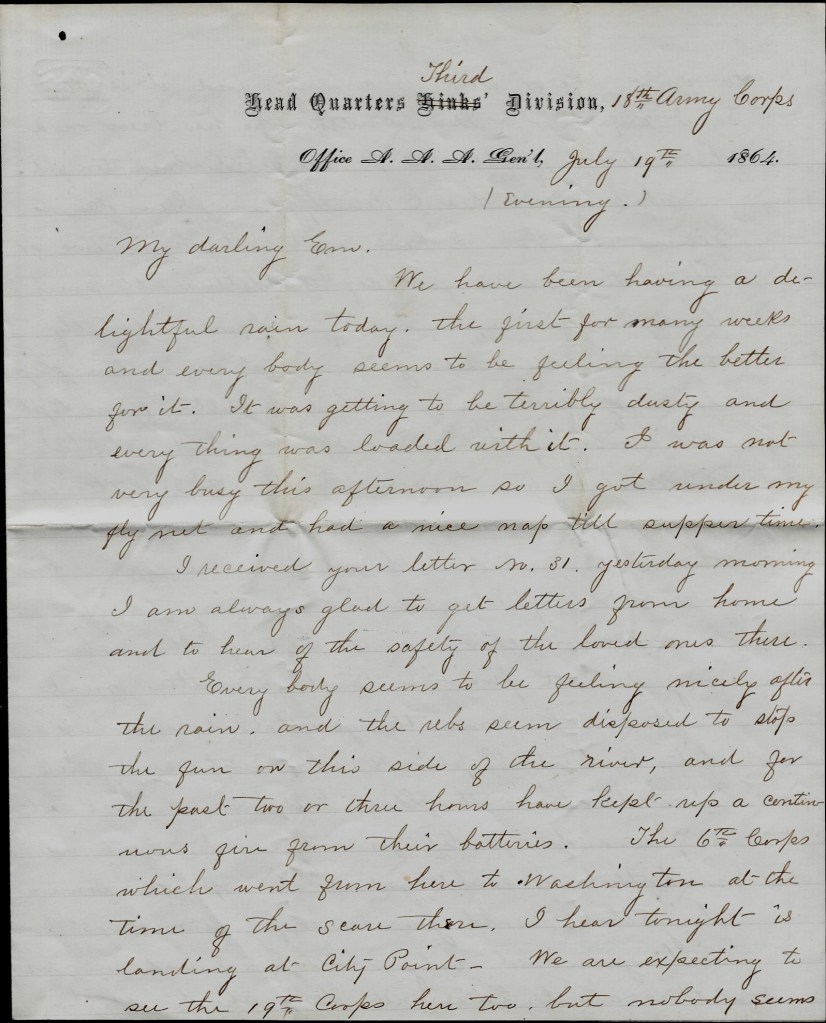 Third
Head Quarters Hinks' Division, 18th Army Corps
Office A. A. A. Gen'l, July 19th 1864.
(Evening.)
My darling Em.
We have been having a de-
lightful rain today. the first for many weeks
and every body seems to be feeling the better
for it. It was getting to be terribly dusty and
every thing was loaded with it. I was not
very busy this afternoon so I got under my
fly net and had a nice nap till supper time.
I received your letter No. 31. yesterday morning
I am always glad to get letters from home
and to hear of the safety of the loved ones there.
Every body seems to be feeling nicely after
the rain. and the rebs seem disposed to stop
the fun on this side of the river, and for
the past two or three hours have kept up a contin-
uous fire from their batteries. The 6th Corps
which went from here to Washington at the
time of the scare there, I hear tonight is
landing at City Point - We are expecting to
see the 19th Corps here too. but nobody seems